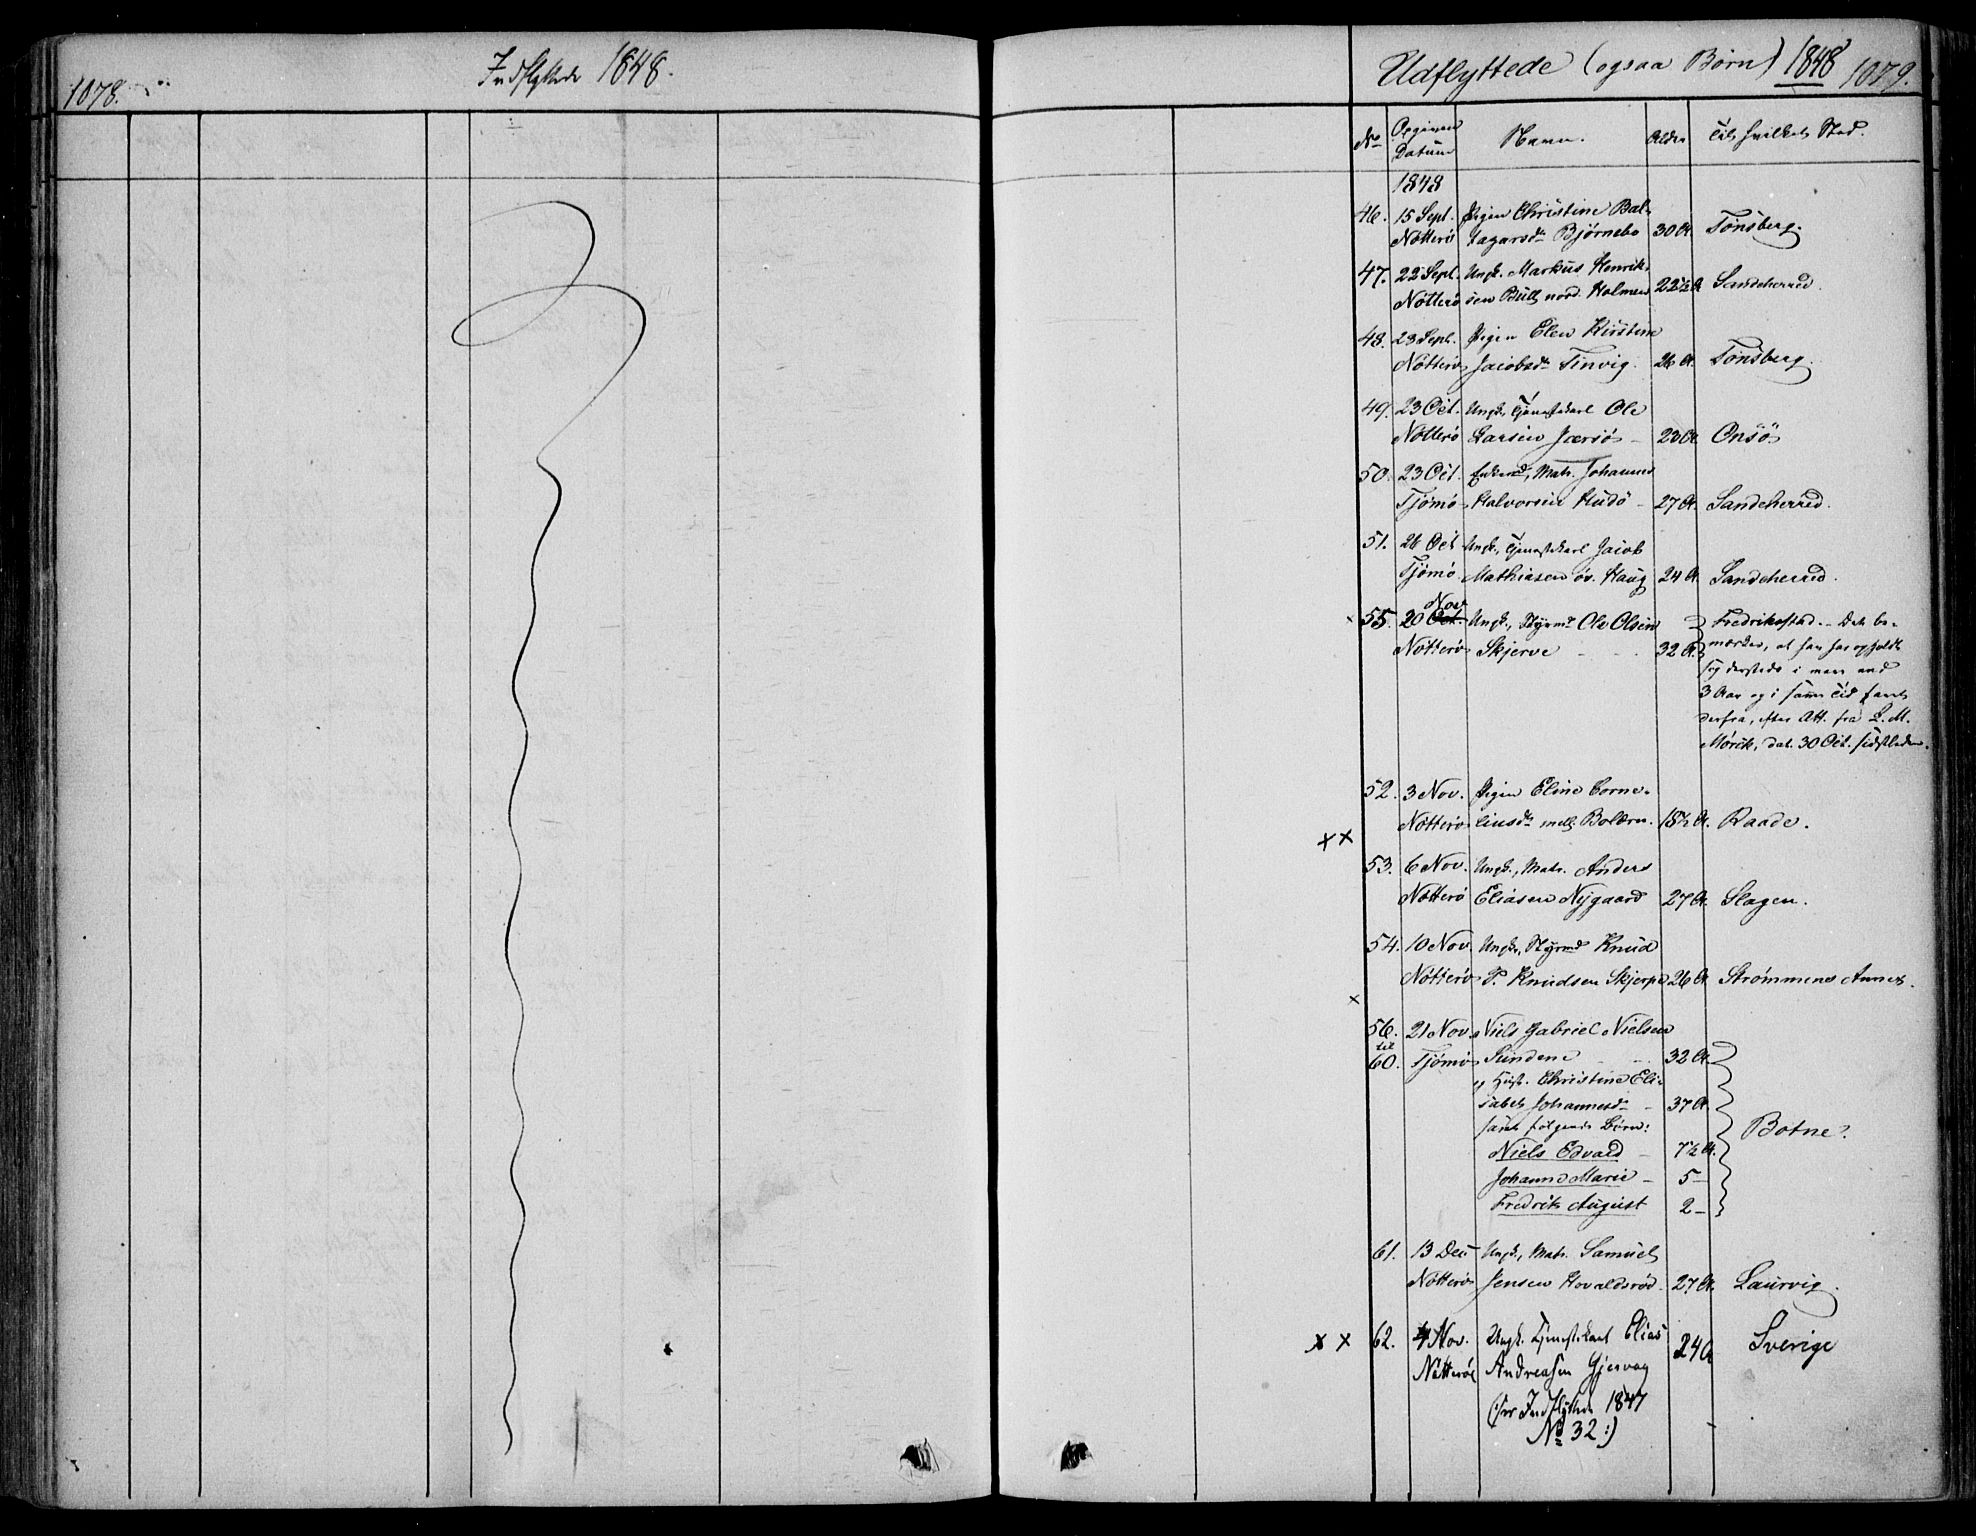 1078.
Indflyttede 1848.
Udflyttede (ogsaa Børn) 1848
1079.
No
Opgiven Datum
Navn.
Alder
Til hvilket Sted.
1848
46. 15 Sept. Pigen Christine Bal-
Nötterö tazarsdr Bjørnebo 30 A. Tønsberg.
47. 22 Sept. Ungk. Markus Henrik-
Nötterö sen Bull nord. Holmen 22½ A Sandeherred.
48. 23 Sept. Pigen Elen Kirstine
Nötterö Jacobsdr Tinvig. 26 A. Tönsberg.
49. 23 Oct. Ungk. Tjenestekarl Ole
Nötterö Larsen Jærsö - 23 A. Onsö
50. 23 Oct. Enkemd, Matr. Johannes
Tjömö Halvorsen Hudö - 27 A. Sandeherred.
51. 26 Oct Ungk., Tjenestekarl Jacob
Tjömö Mathiasen öv. Haug 24 A. Sandeherred.
Nov
x 55. 20 Oct. Ungk., Styrmd Ole Olsen Fredrikstad. - Det be-
Nötterö Skjerve - 32 A. mærkes, at han har opholdt
sig dersteds i mere end
3 Aar og i samme Tid faret
derfra, efter Att. fra L. M.
Mörik, dat. 30 Oct. sidstleden.
52. 3 Nov. Pigen Eline Corne-
Nötterö liusdr mell. Bolærn. 15½ A. Raade.
x x
53. 6 Nov. Ungk., Matr. Anders
Nötterö Eliasen Nygaard 27 A. Slagen.
54. 10 Nov. Ungk., Styrmd Knud
Nötterö P. Knudsen Skjerpe 26 A. Strømmens Annex.
x
56. 21 Nov. Niels Gabriel Nielsen
til
60. Tjömö Sundene - 32 A.
og Hust. Christine Eli-
sabet Johannesdr - 37 A.
samt følgende Børn:
Botne.
Niels Edvard - 7½ A.
Johanne Marie - 5 -
Fredrik August 2 -
61. 13 Dec Ungk., Matr. Samuel
Nötterö Jensen Hovaldsröd. 27 A. Laurvig.
x x 62. 4 Nov. Ungk. Tjenestekarl Elias Sverige
Nötterö Andreasen Gjervag 24 A
(:see Indflyttede 1847
No 32:)